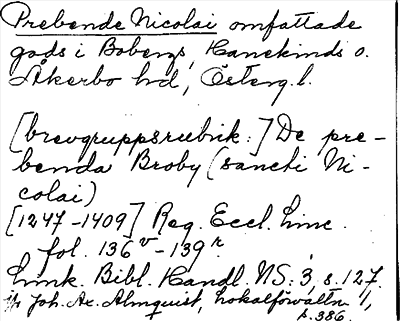 Prebende Nicolai omfattade
gods i Bobergs, Hanekinds o.
Åkerbo hd, Österg.l.
[brevgruppsrubrik:] De pre-
benda Broby (sancti Ni-
colai)
[1247-1409] Reg. Eccl. Linc.
fol. 136v-139r.
Link. Bibl. Handl. NS: 3, s. 127.
jfr Joh. Ax. Almquist, Lokalförvaltn. 1,
s. 386.